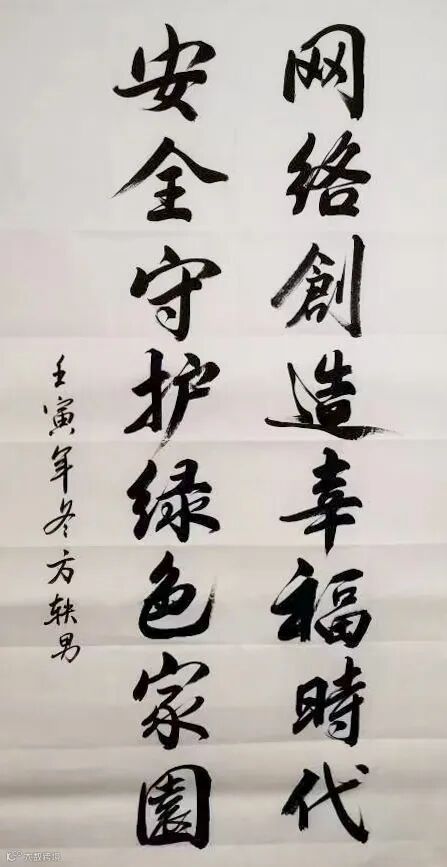 网络創造幸福時代
安全守护绿色家園
壬寅年冬方轶男
大数跨境